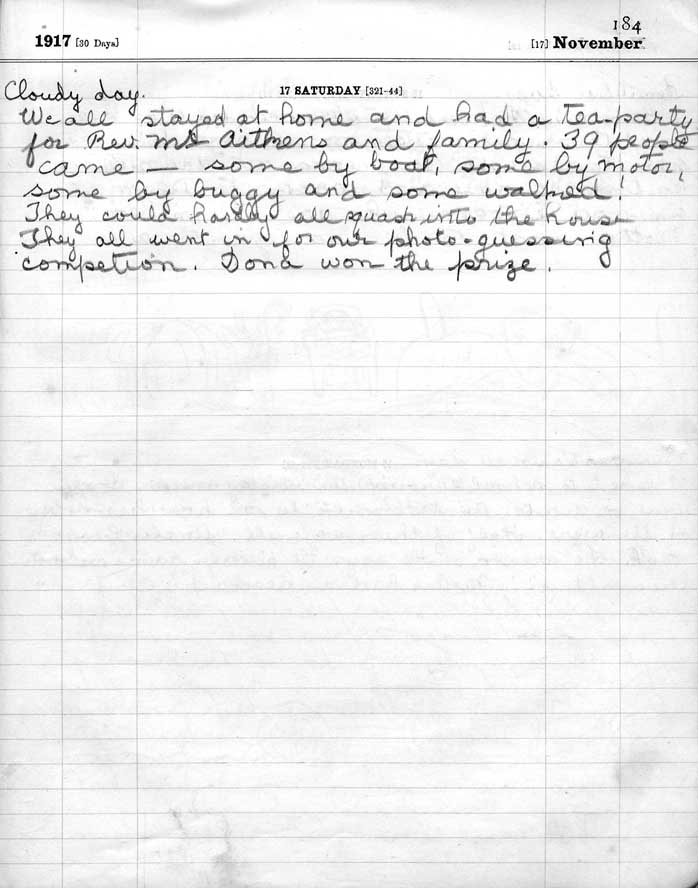 184
1917 [30 Days]
[17] November
17 SATURDAY [321-44]
Cloudy day.
We all stayed at home and had a tea-party
for Rev. Mr Aitkens and family. 39 people
came — some by boat, some by motor,
some by buggy and some walked!
They could hardly all squash into the house
They all went in for our photo-guessing
competion. Dona won the prize.